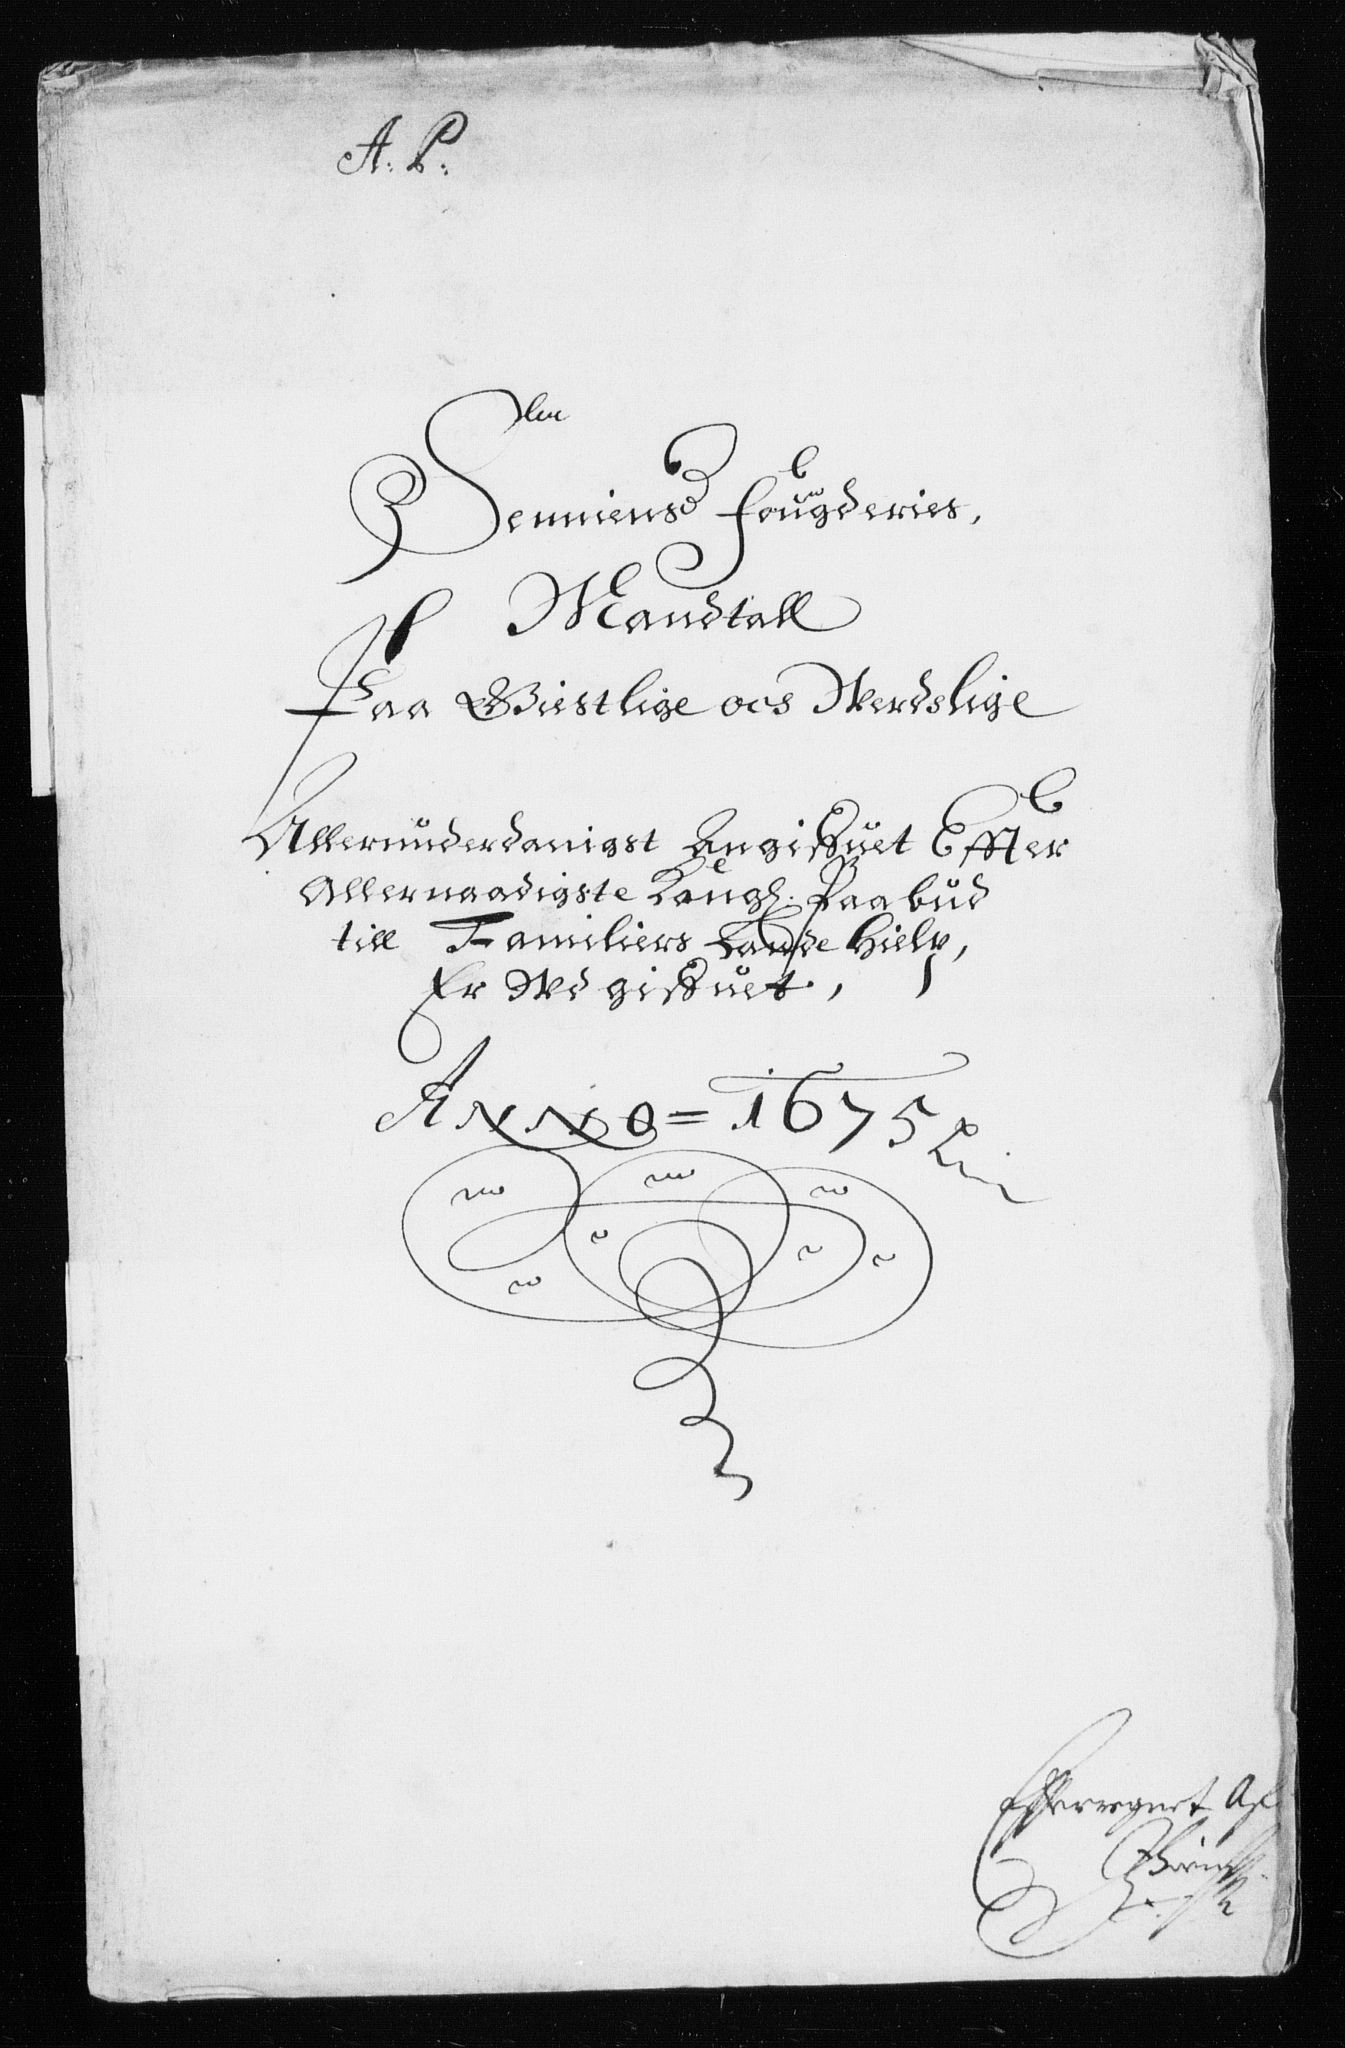 A: P:
Senniens fougderies,
Mandtall
Paa Giestlige ocs Werdslige
Allerunderdanigst Angiffuet Effter
Allernaadigste Kongl. Paabud
till Familiers Lande Hielp,
Er Wdgiffuet,
ANNO = 1675